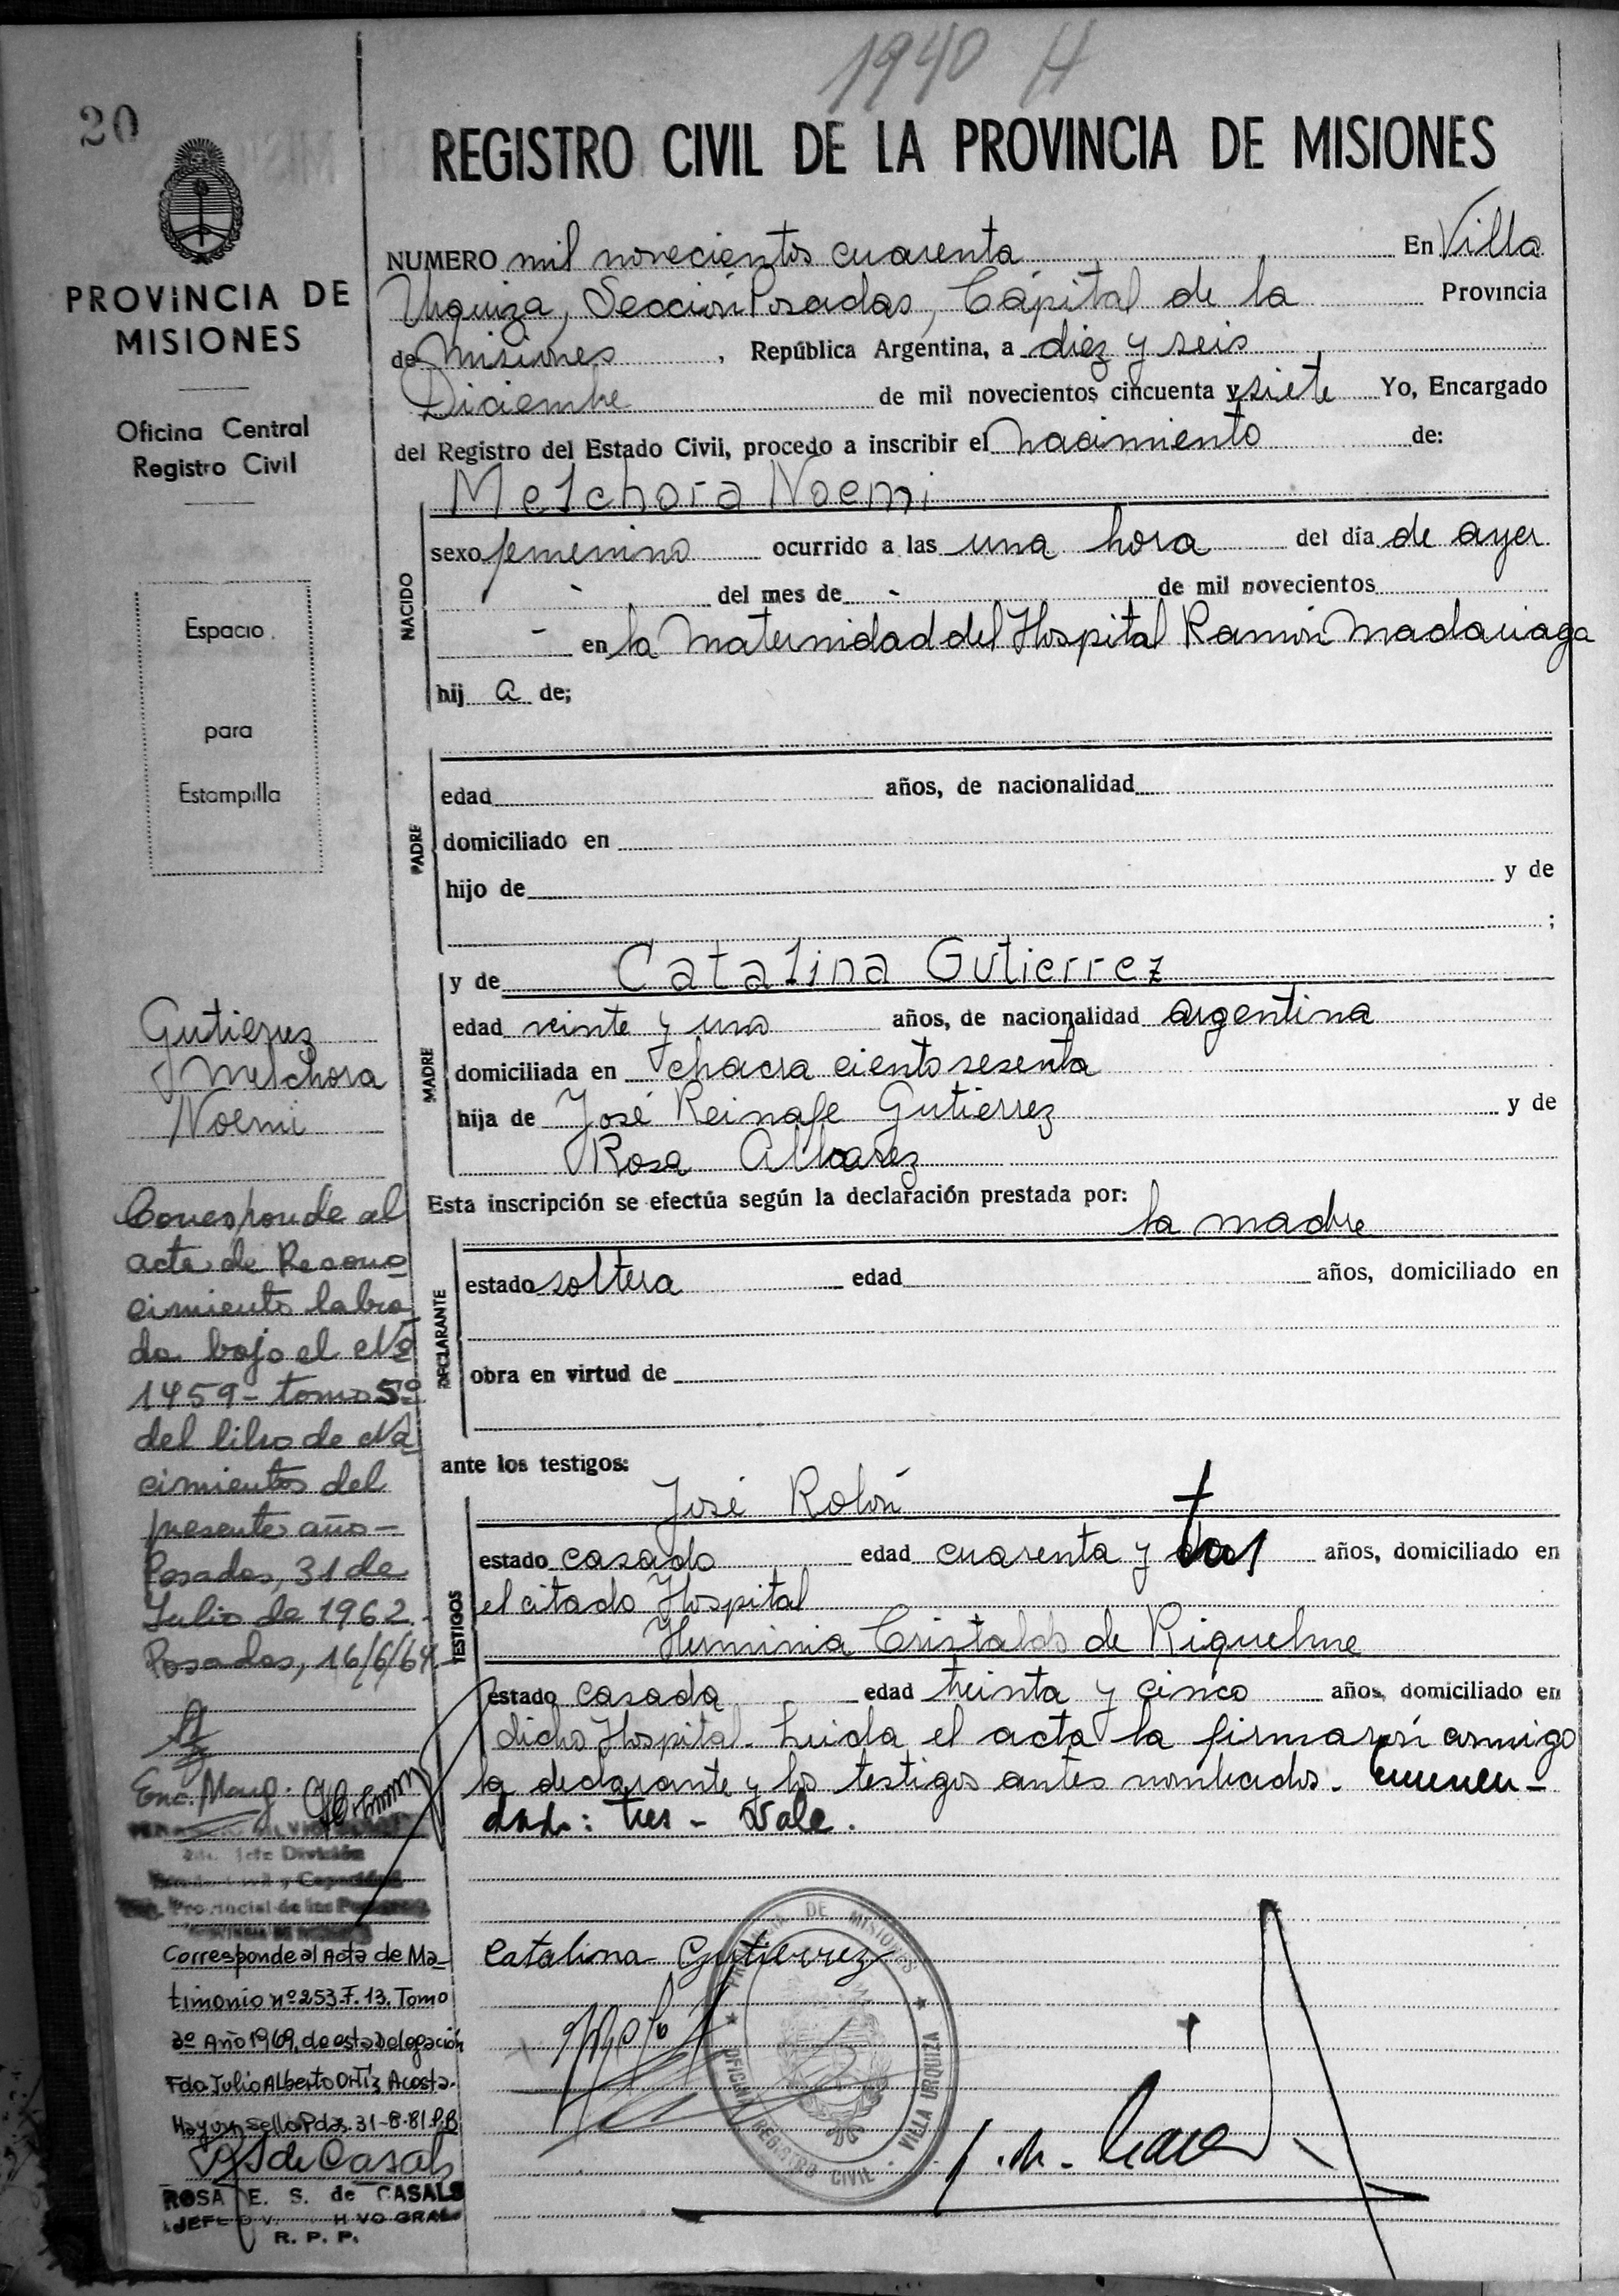 1940 H
20
REGISTRO CIVIL DE LA PROVINCIA DE MISIONES
PROVINCIA DE
MISIONES
Oficina Central
Registro Civil
Espacio
para
Estampilla
NUMERO mil novecientos cuarenta En Villa
Urquiza, Sección Posadas, Capital de la Provincia
de Misiones, República Argentina, a diez y seis
Diciembre de mil novecientos cincuenta y siete Yo, Encargado
del Registro del Estado Civil, procedo a inscribir el nacimiento de:
Melchora Noemi
NACIDO
sexo femenino ocurrido a las una hora del día de ayer
- del mes de - de mil novecientos
- en la Maternidad del Hospital Ramón Madariaga
hij a de;
PADRE
edad años, de nacionalidad
domiciliado en
hijo de y de
;
MADRE
y de Catalina Gutierrez
edad veinte y uno años, de nacionalidad argentina
domiciliada en chacra ciento sesenta
hija de José Reinafe Gutierrez y de
Rosa Alvarez
Esta inscripción se efectúa según la declaración prestada por:
la madre
DECLARANTE
estado soltera edad años, domiciliado en
obra en virtud de
ante los testigos:
TESTIGOS
José Rolón
estado casado edad cuarenta y años, domiciliado en
el citado Hospital
Herminia Cristaldo de Riquelme
estado casada edad treinta y cinco años, domiciliado en
dicho Hospital. Leida el acta la firmaron conmigo
la declarante y los testigos antes nombrados. Enmen-
dado: tres - Vale.
Catalina Gutierrez
PROVINCIA DE MISIONES
OFICINA REGISTRO CIVIL - VILLA URQUIZA
Gutierrez
Melchora
Noemi
Corresponde al
acta de Recono
cimiento labra
da bajo el Nº
1459 - tomo 5º
del libro de Na
cimientos del
presente año -
Posadas, 31 de
Julio de 1962.
Posadas, 16/6/64
Enc. Marg.
Jefe División
Provincial de las Personas
Corresponde al Acta de Ma-
timonio nº 253.F.13. Tomo
2º Año 1969, de esta Delegación
Fdo Julio Alberto Ortiz Acosta.
Hay un sello Pdas. 31-8-81 P.B
RS de Casals
ROSA E. S. de CASALS
R. P. P.